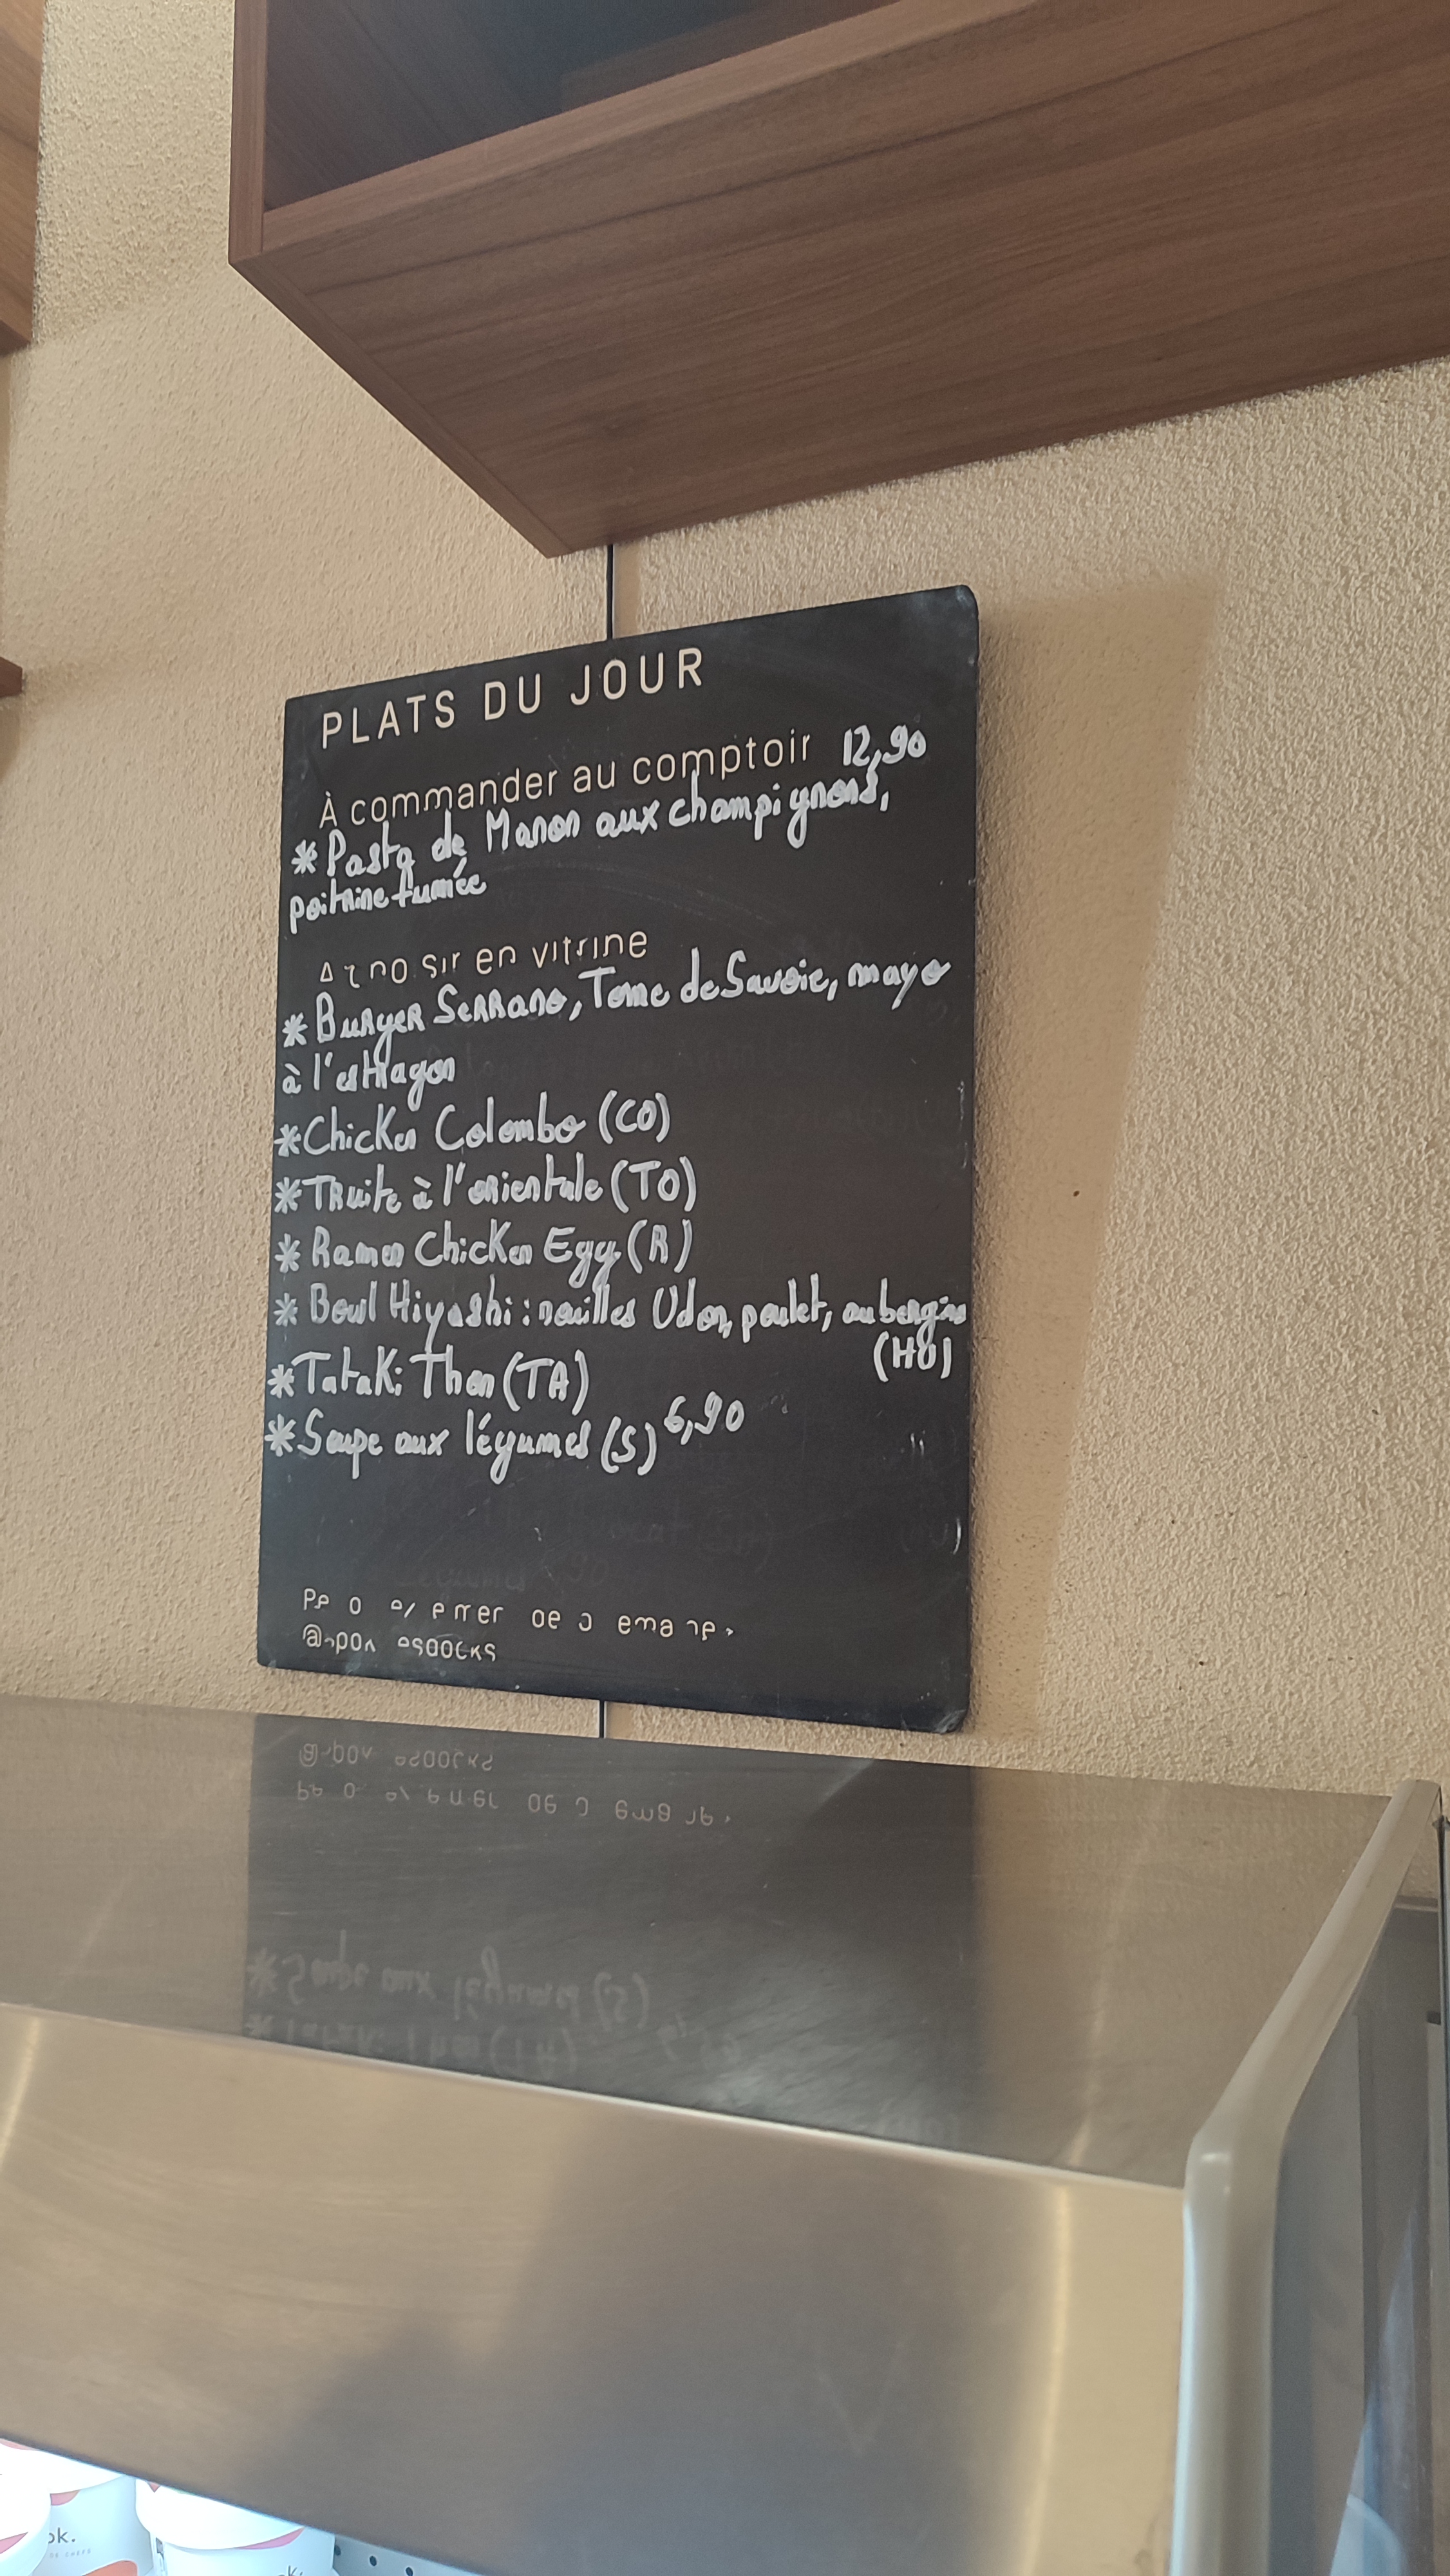 PLATS DU JOUR
À commander au comptoir 12,90
* Pasta de Manon aux champignons,
poitrine fumée
en vitrine
* Burger Serrano, Tome de Savoie, mayo
à l'estragon
* Chicken Colombo (CO)
* Truite à l'orientale (TO)
* Ramen Chicken Egg (R)
* Bowl Hiyashi : nouilles Udon, poulet, aubergines
(HU)
* Tataki Thon (TA)
* Soupe aux légumes (S) 6,90
ok.